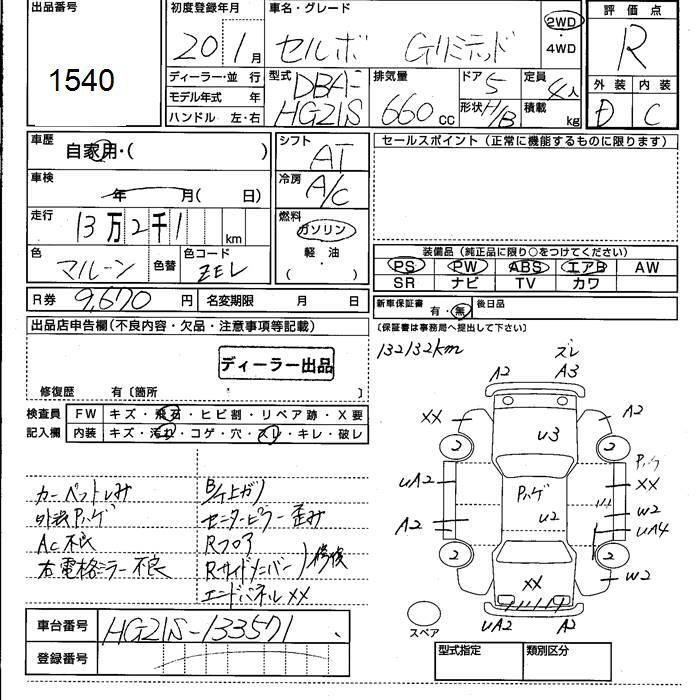 出品番号
1540
初度登録年月
20 1月
車名・グレード
セルボ Gリミテッド
2WD
・
4WD
評価点
R
ディーラー・並 行
モデル年式 年
ハンドル 左・右
型式
DBA-
HG21S
排気量
660cc
ドア
5
形状
H/B
定員
4人
積載
kg
外装
D
内装
C
車歴
自家用・( )
車検
年 月( 日)
走行
13万2千1 km
色
マルーン
色替
色コード
ZEL
シフト
AT
冷房
A/C
燃料
ガソリン
軽油
( )
セールスポイント(正常に機能するものに限ります)
装備品(純正品に限り○をつけてください)
PS PW ABS エアB AW
SR ナビ TV カワ
R券 9,670円 名変期限 月 日
新車保証書 有・無 後日品
(保証書は事務局へ提出して下さい)
出品店申告欄(不良内容・欠品・注意事項等記載)
ディーラー出品
修復歴 有〔箇所 〕
検査員
記入欄
FW キズ・飛石・ヒビ割・リペア跡・X要
内装 キズ・汚れ・コゲ・穴・スレ・キレ・破レ
カーペットしみ
外装Pハゲ
AC不良
右電格ミラー不良
B/下上ガリ
センターピラー歪み
Rフロア
Rサイドメンバー 修復
エンドパネルXX
132132km
ズレ
A2 A3
XX A2
2 2
U3
Pハゲ
UA2 XX
Pハゲ
U2 W2
A2 UA4
2 2
XX W2
UA2 A2
スペア
車台番号 HG21S-133571
登録番号
型式指定 類別区分